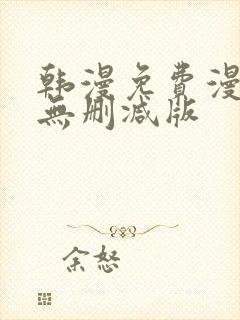 韩漫免費漫
無删减版
余怒